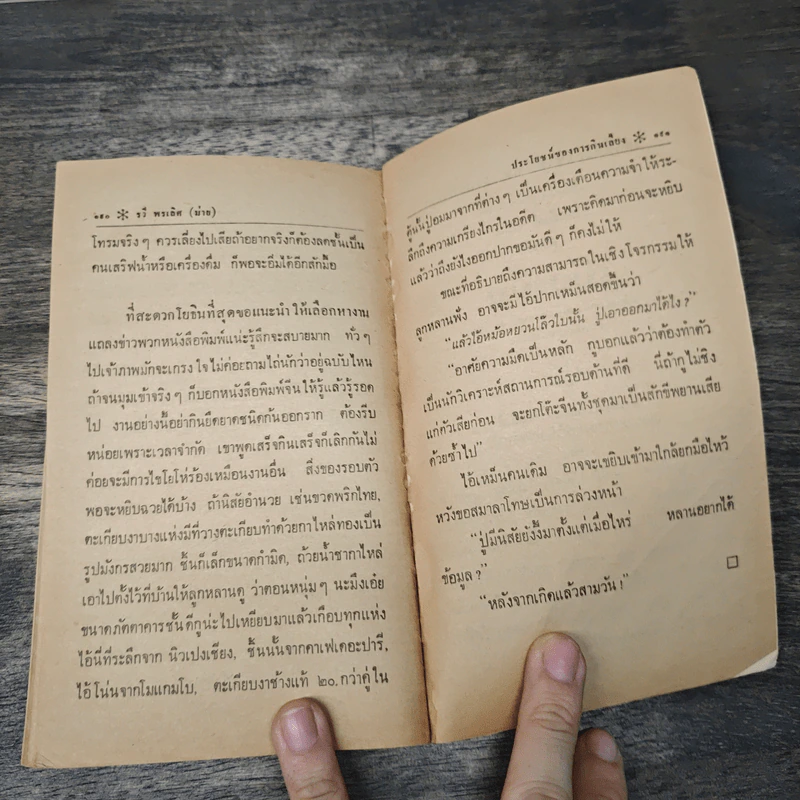 ๑๙๐ * รวี พรเลิศ (ม่าย)
โทรมจริง ๆ ควรเลี่ยงไปเสียถ้าอยากจริงก็ต้องลดชั้นเป็น
คนเสริฟน้ำหรือเครื่องดื่ม ก็พอจะอิ่มได้อีกสักมื้อ
ที่สะดวกโยธินที่สุดขอแนะนำ ให้เลือกหางาน
แถลงข่าวพวกหนังสือพิมพ์แน่ะรู้สึกจะสบายมาก ทั่ว ๆ
ไปเจ้าภาพมักจะเกรงใจไม่ค่อยถามไถ่นักว่าอยู่ฉบับไหน
ถ้าจนมุมเข้าจริง ๆ ก็บอกหนังสือพิมพ์จีน ให้รู้แล้วรู้รอด
ไป งานอย่างนี้อย่ากินยืดยาดชนิดก้นออกราก ต้องรีบ
หน่อยเพราะเวลาจำกัด เขาพูดเสร็จกินเสร็จก็เลิกกันไม่
ค่อยจะมีการไชโยโห่ร้องเหมือนงานอื่น สิ่งของรอบตัว
พอจะหยิบฉวยได้บ้าง ถ้านิสัยอำนวย เช่นขวดพริกไทย,
ตะเกียบงาบางแห่งมีที่วางตะเกียบทำด้วยกาไหล่ทองเป็น
รูปมังกรสวยมาก ชิ้นก็เล็กขนาดกำมิด, ถ้วยน้ำชากาไหล่
เอาไปตั้งไว้ที่บ้านให้ลูกหลานดู ว่าตอนหนุ่ม ๆ นะมึงเอ๋ย
ขนาดภัตตาคารชั้นดีกูน่ะไปเหยียบมาแล้วเกือบทุกแห่ง
ไอ้นี่ที่ระลึกจาก นิวเปงเชียง, ชิ้นนั้นจากคาเฟเดอะปารี,
ไอ้โน่นจากโมแกมโบ, ตะเกียบงาช้างแท้ ๒๐ กว่าคู่ใน
ประโยชน์ของการกินเลี้ยง * ๑๙๑
ตู้นั้นปู่อมมาจากที่ต่าง ๆ เป็นเครื่องเตือนความจำ ให้ระ-
ลึกถึงความเกรียงไกรในอดีต เพราะคิดมาก่อนจะหยิบ
แล้วว่าถึงยังไงออกปากขอมันดี ๆ ก็คงไม่ให้
ขณะที่อธิบายถึงความสามารถในเชิงโจรกรรมให้
ลูกหลานฟัง อาจจะมีไอ้ปากเหม็นสอดขึ้นว่า
"แล้วไอ้หม้อหยวนโล๊วใบนั้น ปู่เอาออกมาได้ไง ?"
"อาศัยความมืดเป็นหลัก กูบอกแล้วว่าต้องทำตัว
เป็นนักวิเคราะห์สถานการณ์รอบด้านที่ดี นี่ถ้ากูไม่ชิง
แก่ตัวเสียก่อน จะยกโต๊ะจีนทั้งชุดมาเป็นสักขีพยานเสีย
ด้วยซ้ำไป"
ไอ้เหม็นคนเดิม อาจจะเขยิบเข้ามาใกล้ยกมือไหว้
หวังขอสมาลาโทษเป็นการล่วงหน้า
"ปู่มีนิสัยยังงี้มาตั้งแต่เมื่อไหร่ หลานอยากได้
ข้อมูล ?"
"หลังจากเกิดแล้วสามวัน !"